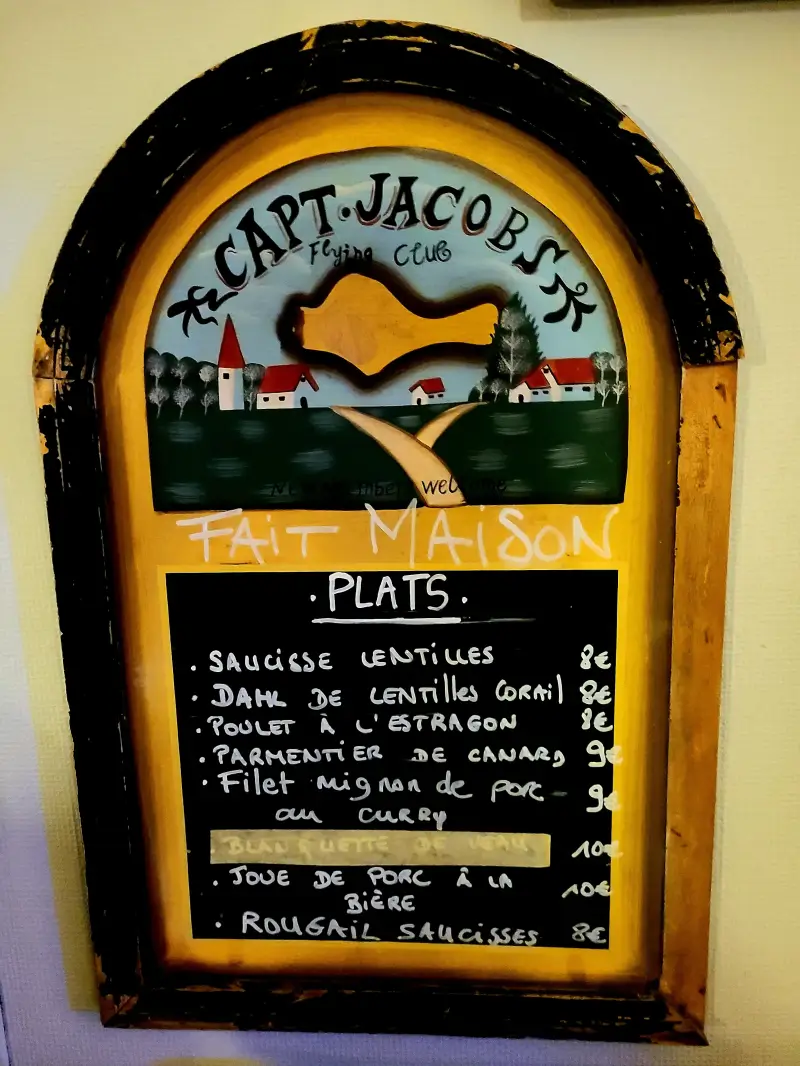 CAPT. JACOBS
Flying CLUB
welcome
FAIT MAISON
. PLATS .
. SAUCISSE LENTILLES 8€
. DAHL DE LENTILLES CORAIL 8€
. POULET À L'ESTRAGON 8€
. PARMENTIER DE CANARD 9€
. Filet mignon de porc - 9€
au curry
BLANQUETTE DE VEAU 10€
. JOUE DE PORC À LA 10€
BIÈRE
. ROUGAIL SAUCISSES 8€